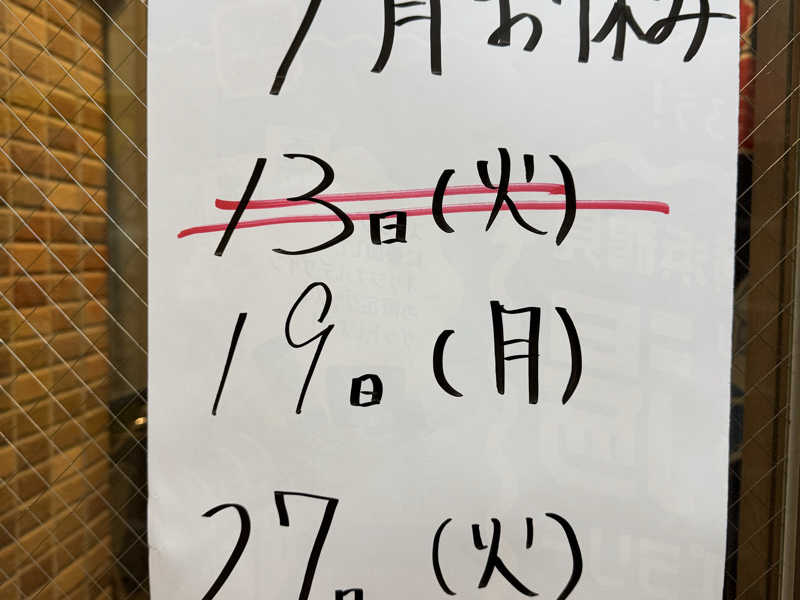 月お休み
13日(火)
19日(月)
27日(火)